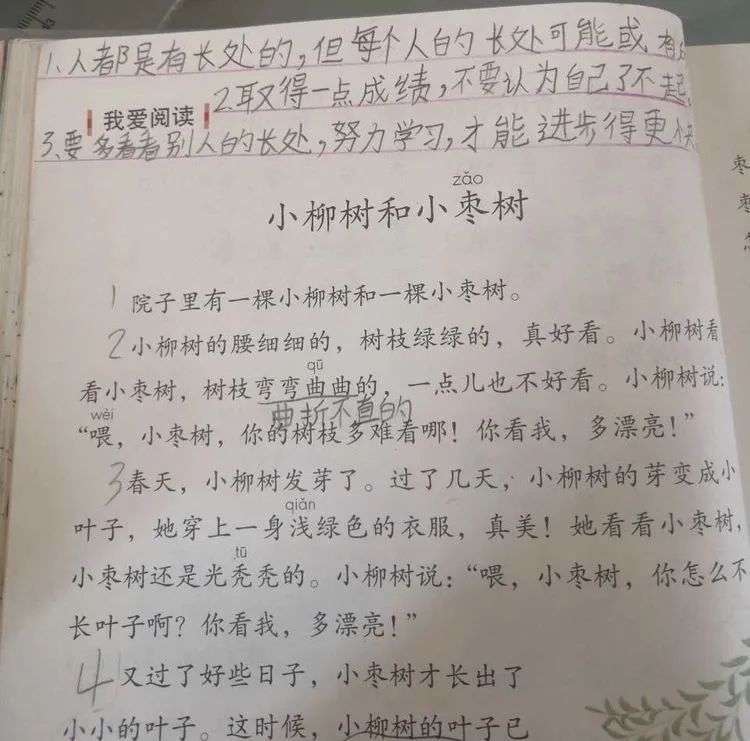 1、人都是有长处的,但每个人的长处可能或有
2取得一点成绩,不要认为自己了不起,
我爱阅读
3、要多看看别人的长处,努力学习,才能进步得更快
zǎo
小柳树和小枣树
1 院子里有一棵小柳树和一棵小枣树。
2 小柳树的腰细细的，树枝绿绿的，真好看。小柳树看
qū
看小枣树，树枝弯弯曲曲的，一点儿也不好看。小柳树说：
曲折不直的
wèi
“喂，小枣树，你的树枝多难看哪！你看我，多漂亮！”
3 春天，小柳树发芽了。过了几天，小柳树的芽变成小
qiǎn
叶子，她穿上一身浅绿色的衣服，真美！她看看小枣树，
tū
小枣树还是光秃秃的。小柳树说：“喂，小枣树，你怎么不
长叶子啊？你看我，多漂亮！”
4 又过了好些日子，小枣树才长出了
小小的叶子。这时候，小柳树的叶子已
枣
枣